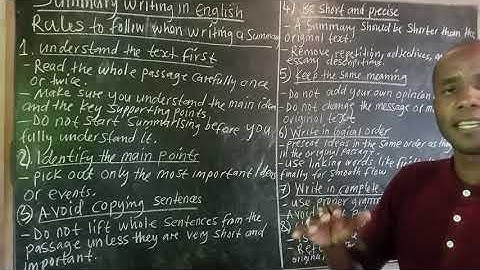 Summary writing in English
Rules to follow when writing a Summary
1. understand the text first
- Read the whole passage carefully once
or twice.
- Make sure you understand the main idea
and the key supporting points.
- Do not start Summarising before you
fully understand it.
2) Identify the main points
- pick out only the most important ideas
or events.
3) Avoid copying sentences
- Do not lift whole sentences from the
passage unless they are very short and
important.
4) Be short and precise
- A Summary should be shorter than the
original text.
- Remove repetition, adjectives,
descriptions.
5) Keep the same meaning
- Do not add your own opinion
- Do not change the message of
original text
6) Write in logical order
- present ideas in the same order as
in the original
- use linking words like
finally for smooth flow
7) Write in complete
- use proper
Avoid
8)